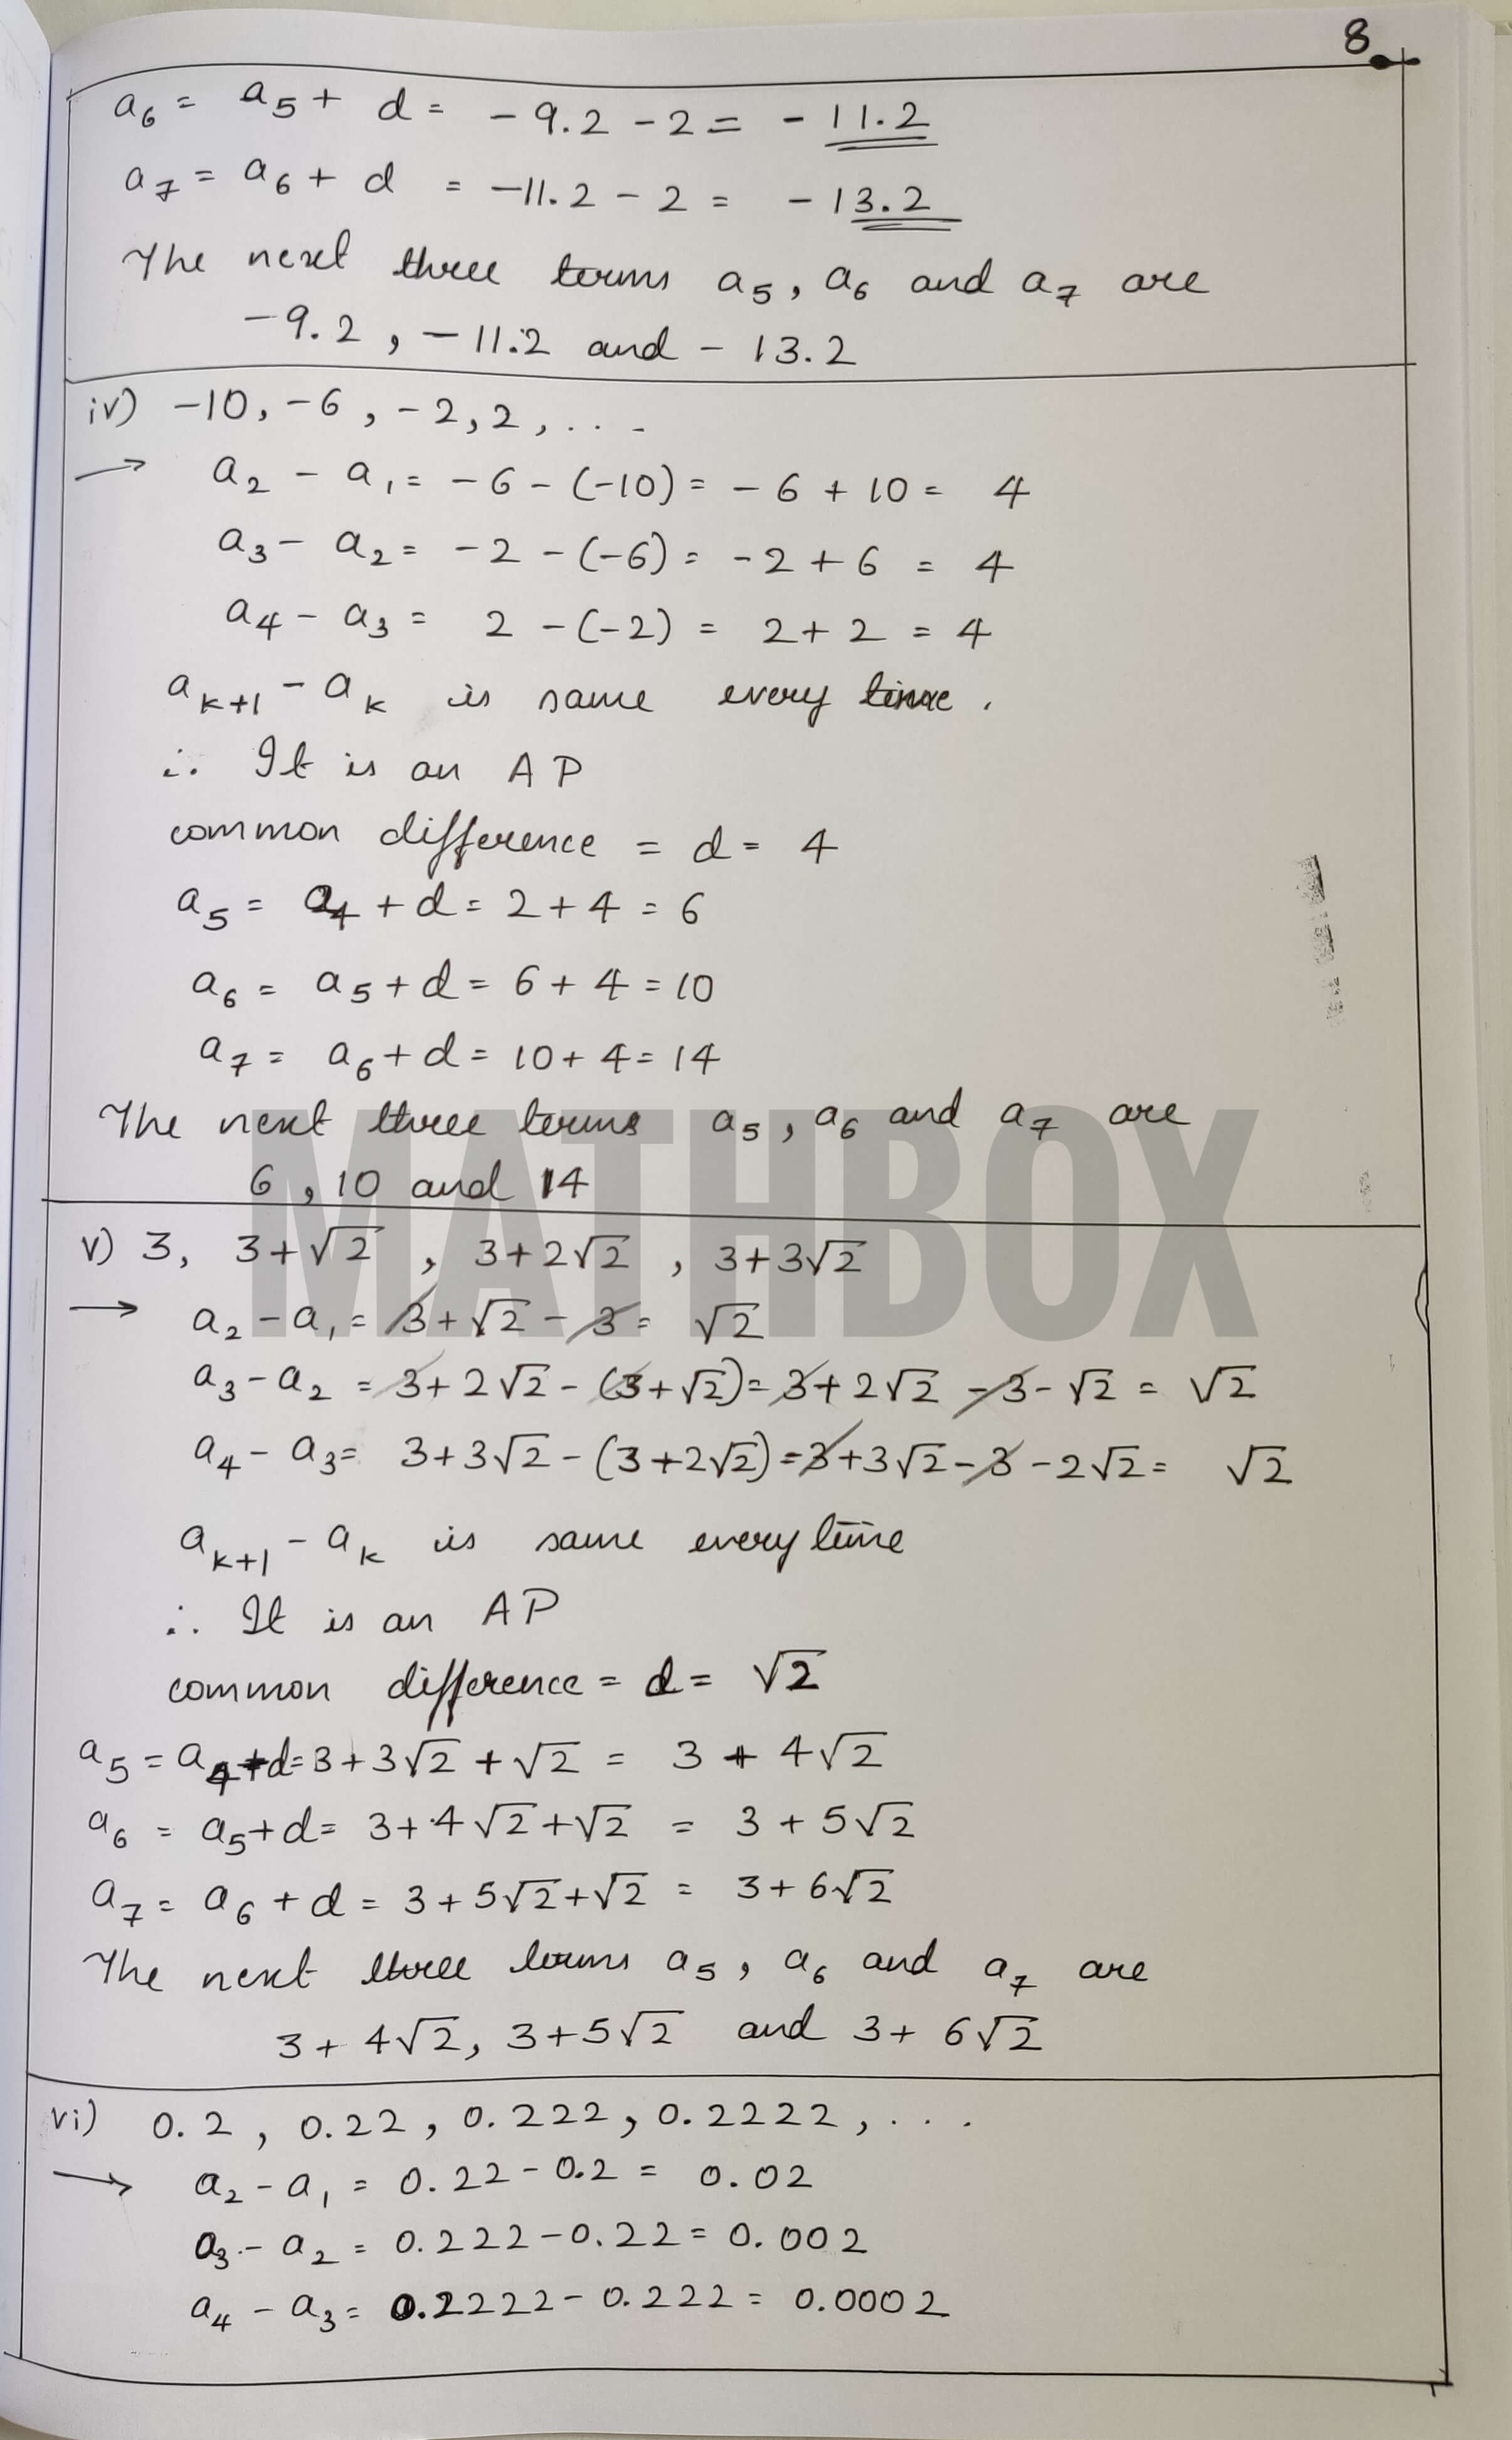 8
a₆ = a₅ + d = - 9.2 - 2 = - 11.2
a₇ = a₆ + d = -11.2 - 2 = - 13.2
The next three terms a₅, a₆ and a₇ are
-9.2, -11.2 and - 13.2
iv) -10, -6, -2, 2, ...
→ a₂ - a₁ = -6 - (-10) = -6 + 10 = 4
a₃ - a₂ = -2 - (-6) = -2 + 6 = 4
a₄ - a₃ = 2 - (-2) = 2 + 2 = 4
aₖ₊₁ - aₖ is same every time.
∴ It is an AP
common difference = d = 4
a₅ = a₄ + d = 2 + 4 = 6
a₆ = a₅ + d = 6 + 4 = 10
a₇ = a₆ + d = 10 + 4 = 14
The next three terms a₅, a₆ and a₇ are
6, 10 and 14
MATHBOX
v) 3, 3+√2, 3+2√2, 3+3√2
→ a₂ - a₁ = 3+√2 - 3 = √2
a₃ - a₂ = 3+2√2 - (3+√2) = 3+2√2 - 3 - √2 = √2
a₄ - a₃ = 3+3√2 - (3+2√2) = 3+3√2 - 3 - 2√2 = √2
aₖ₊₁ - aₖ is same every time
∴ It is an AP
common difference = d = √2
a₅ = a₄+d = 3+3√2 + √2 = 3 + 4√2
a₆ = a₅+d = 3+4√2+√2 = 3 + 5√2
a₇ = a₆ + d = 3+5√2+√2 = 3+6√2
The next three terms a₅, a₆ and a₇ are
3+ 4√2, 3+5√2 and 3+ 6√2
vi) 0.2, 0.22, 0.222, 0.2222, ...
→ a₂ - a₁ = 0.22 - 0.2 = 0.02
a₃ - a₂ = 0.222 - 0.22 = 0.002
a₄ - a₃ = 0.2222 - 0.222 = 0.0002